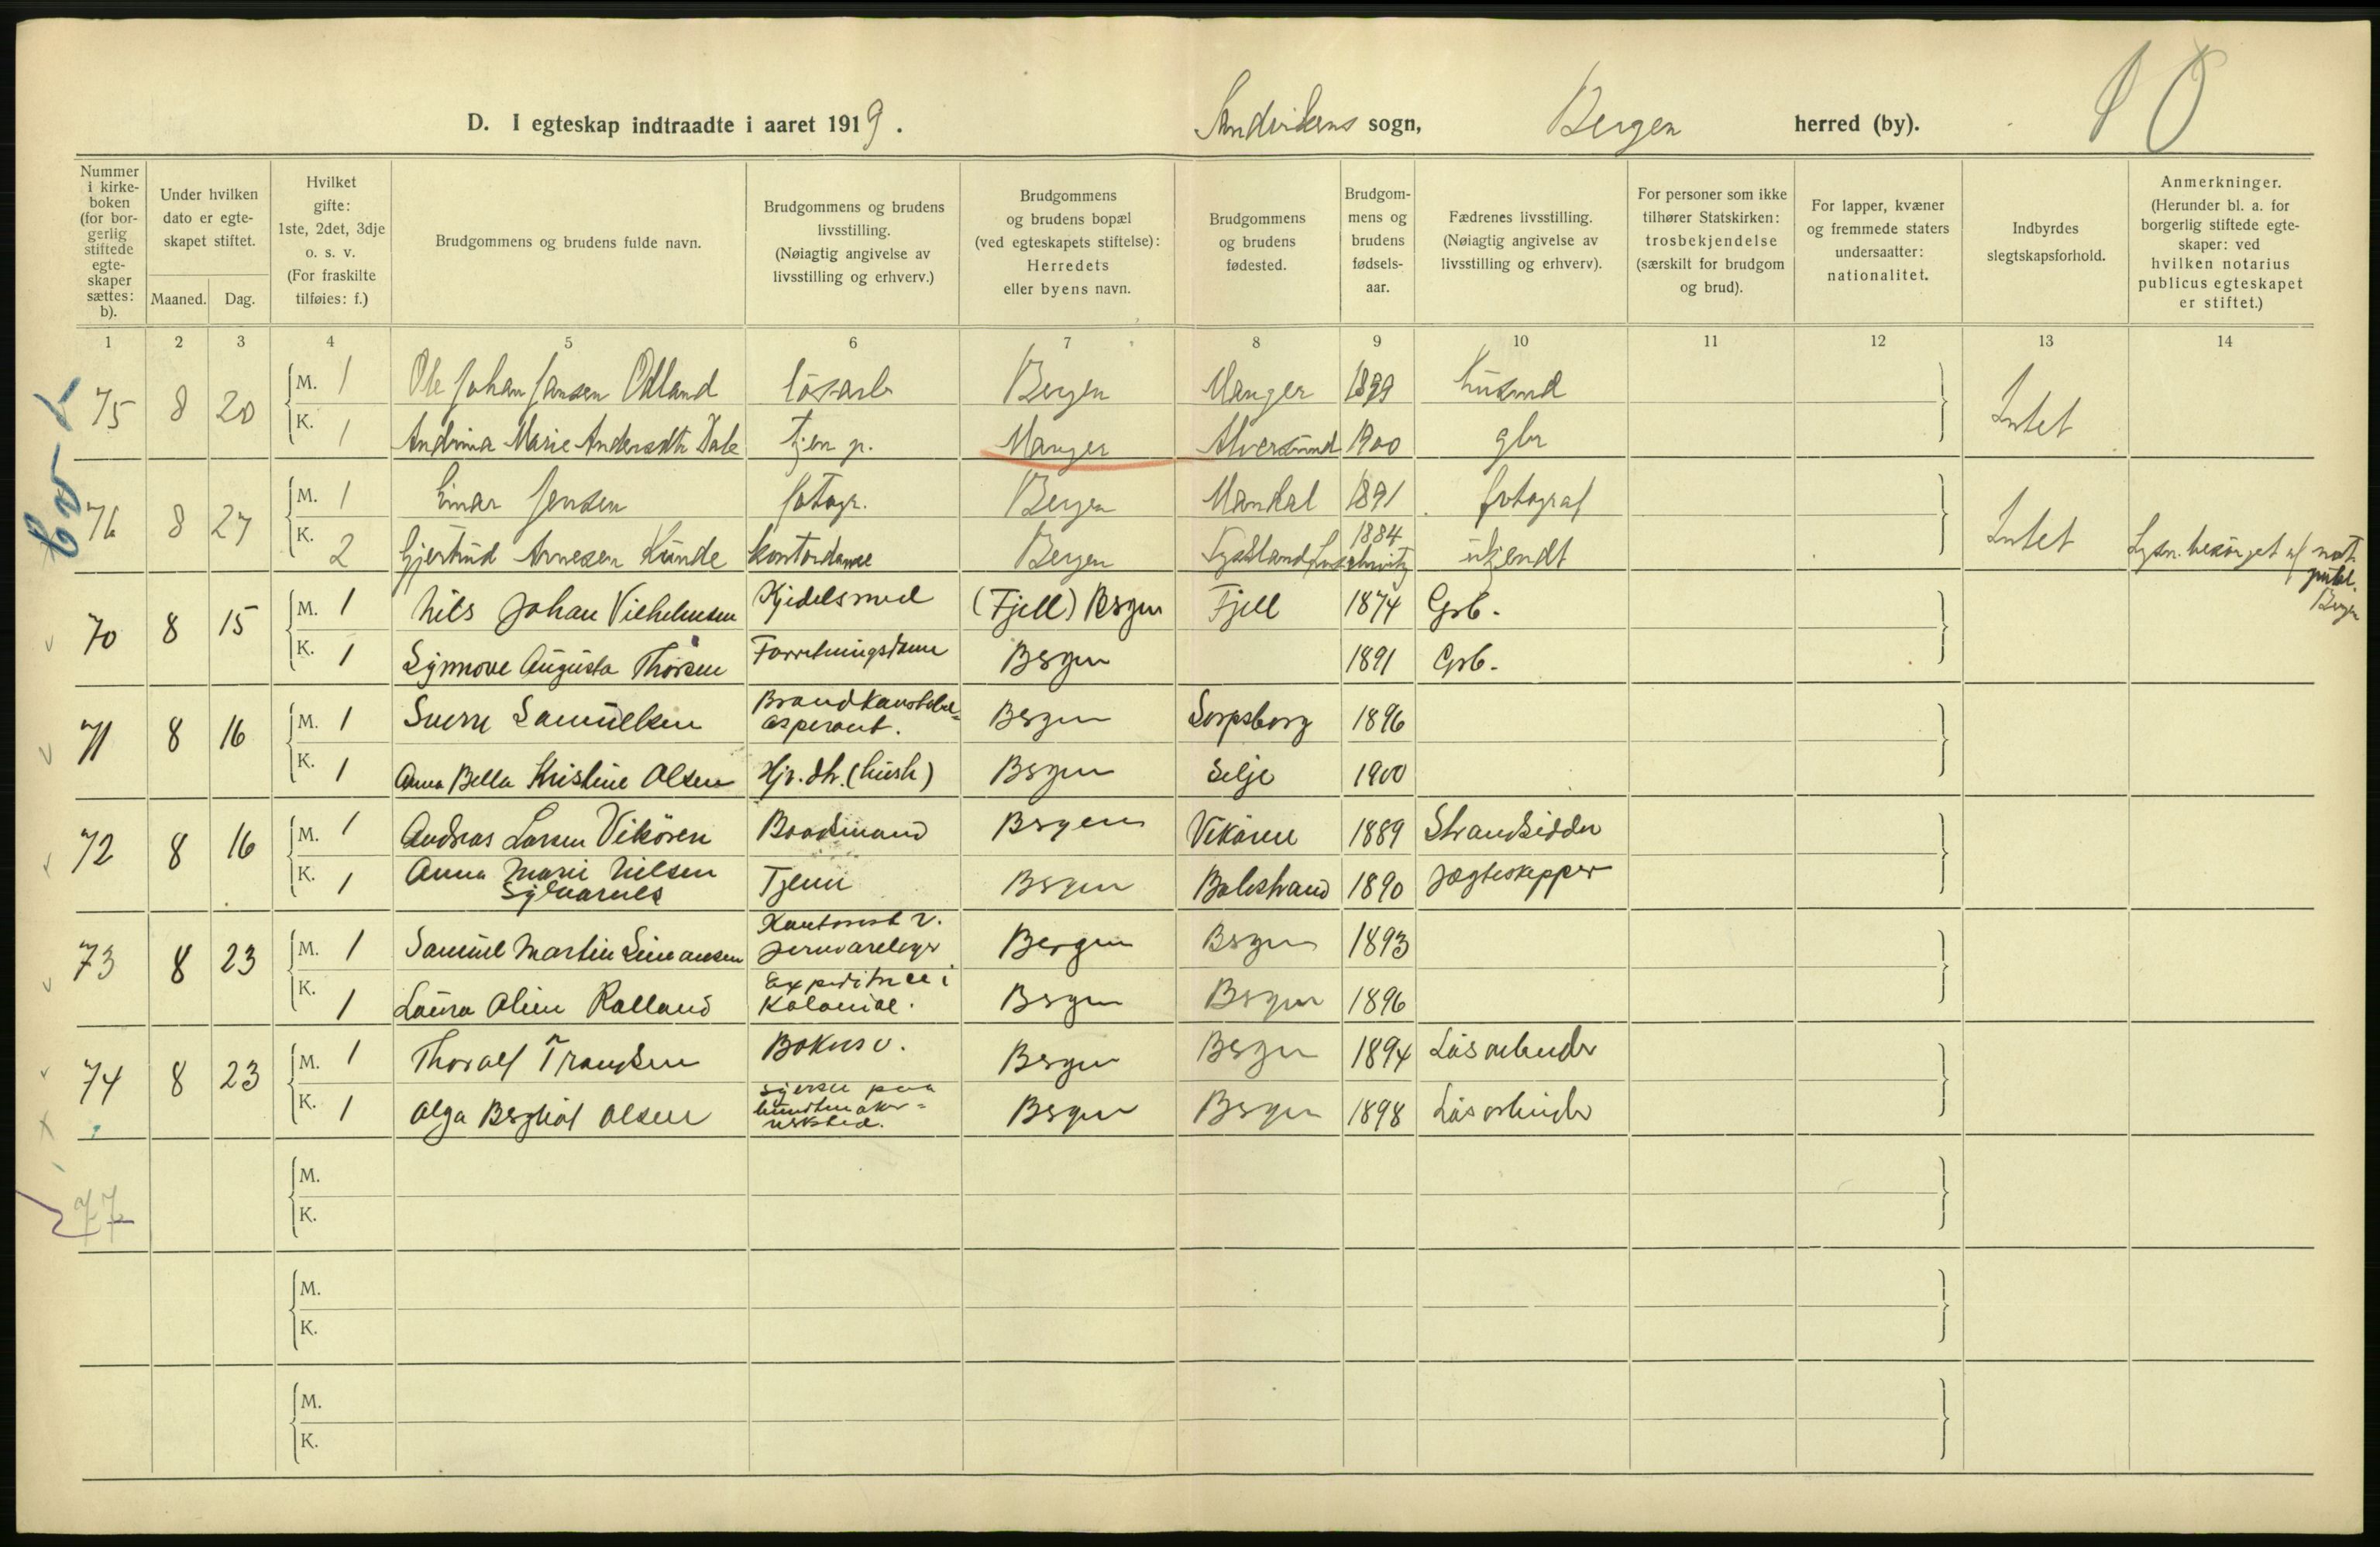 D. I egteskap indtraadte i aaret 1919. Sandvikens sogn, Bergen herred (by).
Nummer i kirke-boken (for bor-gerlig stiftede egte-skaper sættes: b).
Under hvilken dato er egte-skapet stiftet.
Maaned. Dag.
Hvilket gifte: 1ste, 2det, 3dje o. s. v. (For fraskilte tilføies: f.)
Brudgommens og brudens fulde navn.
Brudgommens og brudens livsstilling. (Nøiagtig angivelse av livsstilling og erhverv.)
Brudgommens og brudens bopæl (ved egteskapets stiftelse): Herredets eller byens navn.
Brudgommens og brudens fødested.
Brudgom-mens og brudens fødsels-aar.
Fædrenes livsstilling. (Nøiagtig angivelse av livsstilling og erhverv).
For personer som ikke tilhører Statskirken: trosbekjendelse (særskilt for brudgom og brud).
For lapper, kvæner og fremmede staters undersaatter: nationalitet.
Indbyrdes slegtskapsforhold.
Anmerkninger. (Herunder bl. a. for borgerlig stiftede egte-skaper: ved hvilken notarius publicus egteskapet er stiftet.)
1 2 3 4 5 6 7 8 9 10 11 12 13 14
75 8 20 M. 1 Ole Johan Jansen Odland løsarb Bergen Manger 1899 husmd Intet
K. 1 Andrina Marie Andersdtr Dale tjen p. Manger Alversund 1900 gbr
76 8 27 M. 1 Einar Jensen fotogr. Bergen Mandal 1891 fotograf Intet
K. 2 Gjertrud Arnesen Kunde kontordame Bergen 1884 ukjendt Lysn. besørget af not. publ. Bergen
70 8 15 M. 1 Nils Johan Vilhelmsen Kjedelsmed (Fjell) Bergen Fjell 1874 Grb.
K. 1 Synnove Augusta Thorsen Forretningsdame Bergen 1891 Grb.
71 8 16 M. 1 Sverre Samuelsen Brandkonstabel= aspirant. Bergen Sarpsborg 1896
K. 1 Anna Bella Kristine Olsen Hjv. dtr. (hush) Bergen Selje 1900
72 8 16 M. 1 Andreas Larsen Vikøren Baadsmand Bergen Vikøren 1889 Strandsidder
K. 1 Anna Marie Nielsen Sylvarnes Tjener Bergen Balestrand 1890 Jægteskipper
73 8 23 M. 1 Samuel Martin Simonsen Kontorist v. jernvarelager Bergen Bergen 1893
K. 1 Laura Oline Rolland Expeditrice i Kolonial. Bergen Bergen 1896
74 8 23 M. 1 Thoralf Frandsen Bokersv. Bergen Bergen 1894 Løsarbeider
K. 1 Olga Bergliot Olsen syerske paa buntmaker= verksted. Bergen Bergen 1898 Løsarbeider
77 M.
K.
M.
K.
M.
K.